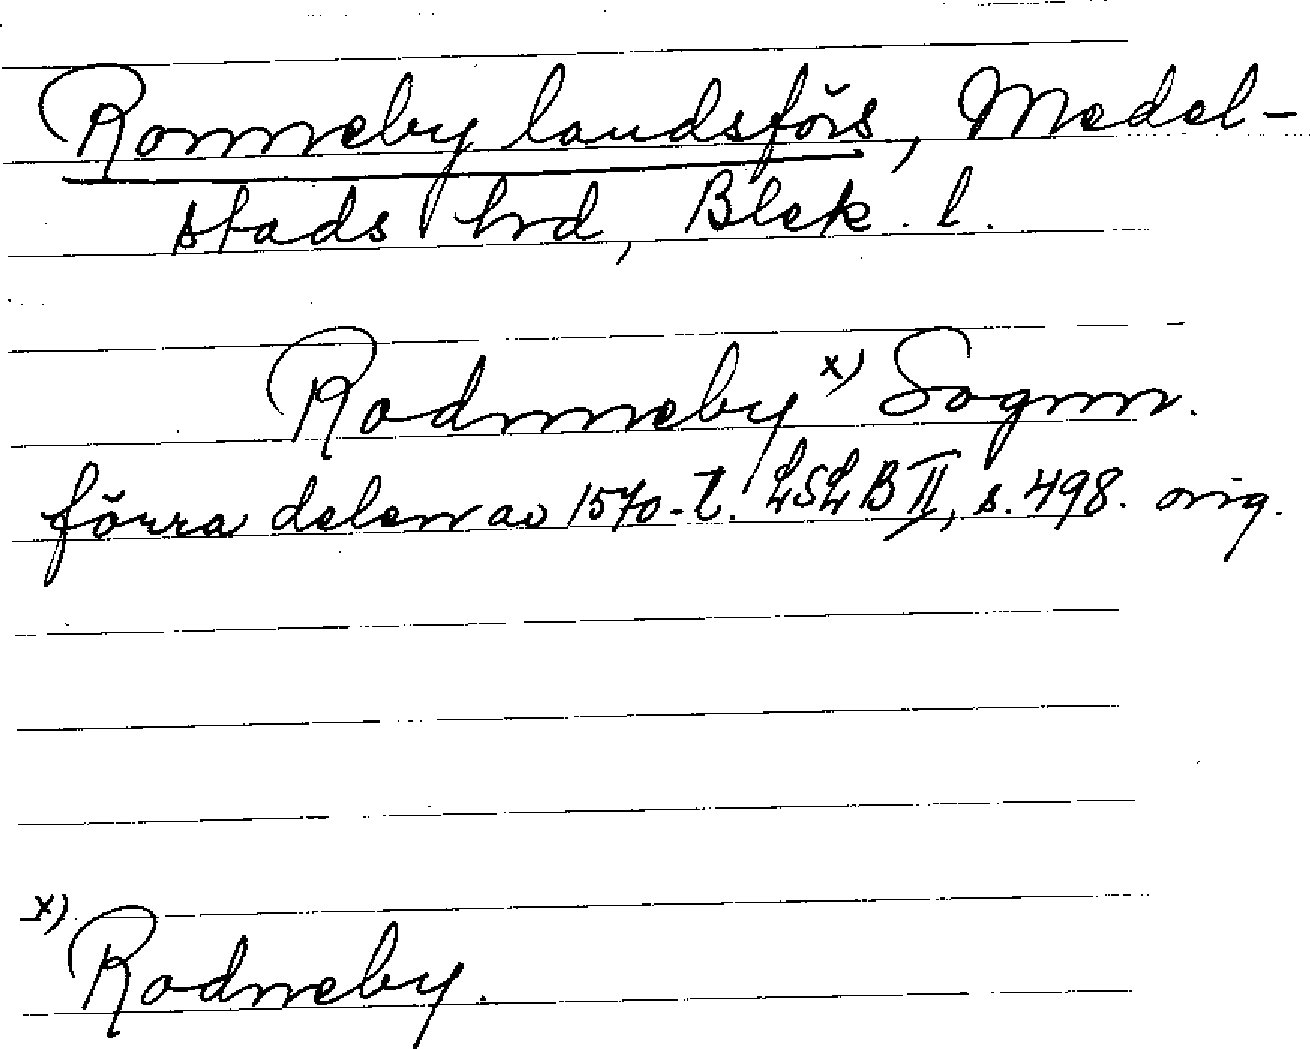 Ronneby landsförs, Medel-
stads hrd, Blek. l.
Rodnneby x) Sognn.
förra delen av 1570-t. LSLB II, s. 498. orig.
x) Rodneby.